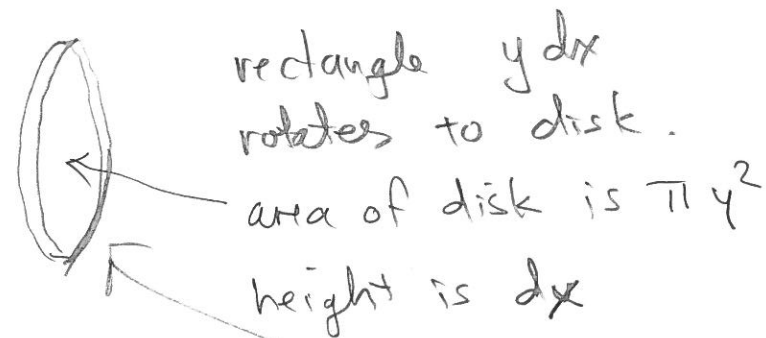 rectangle y dx
rotates to disk.
area of disk is π y²
height is dx